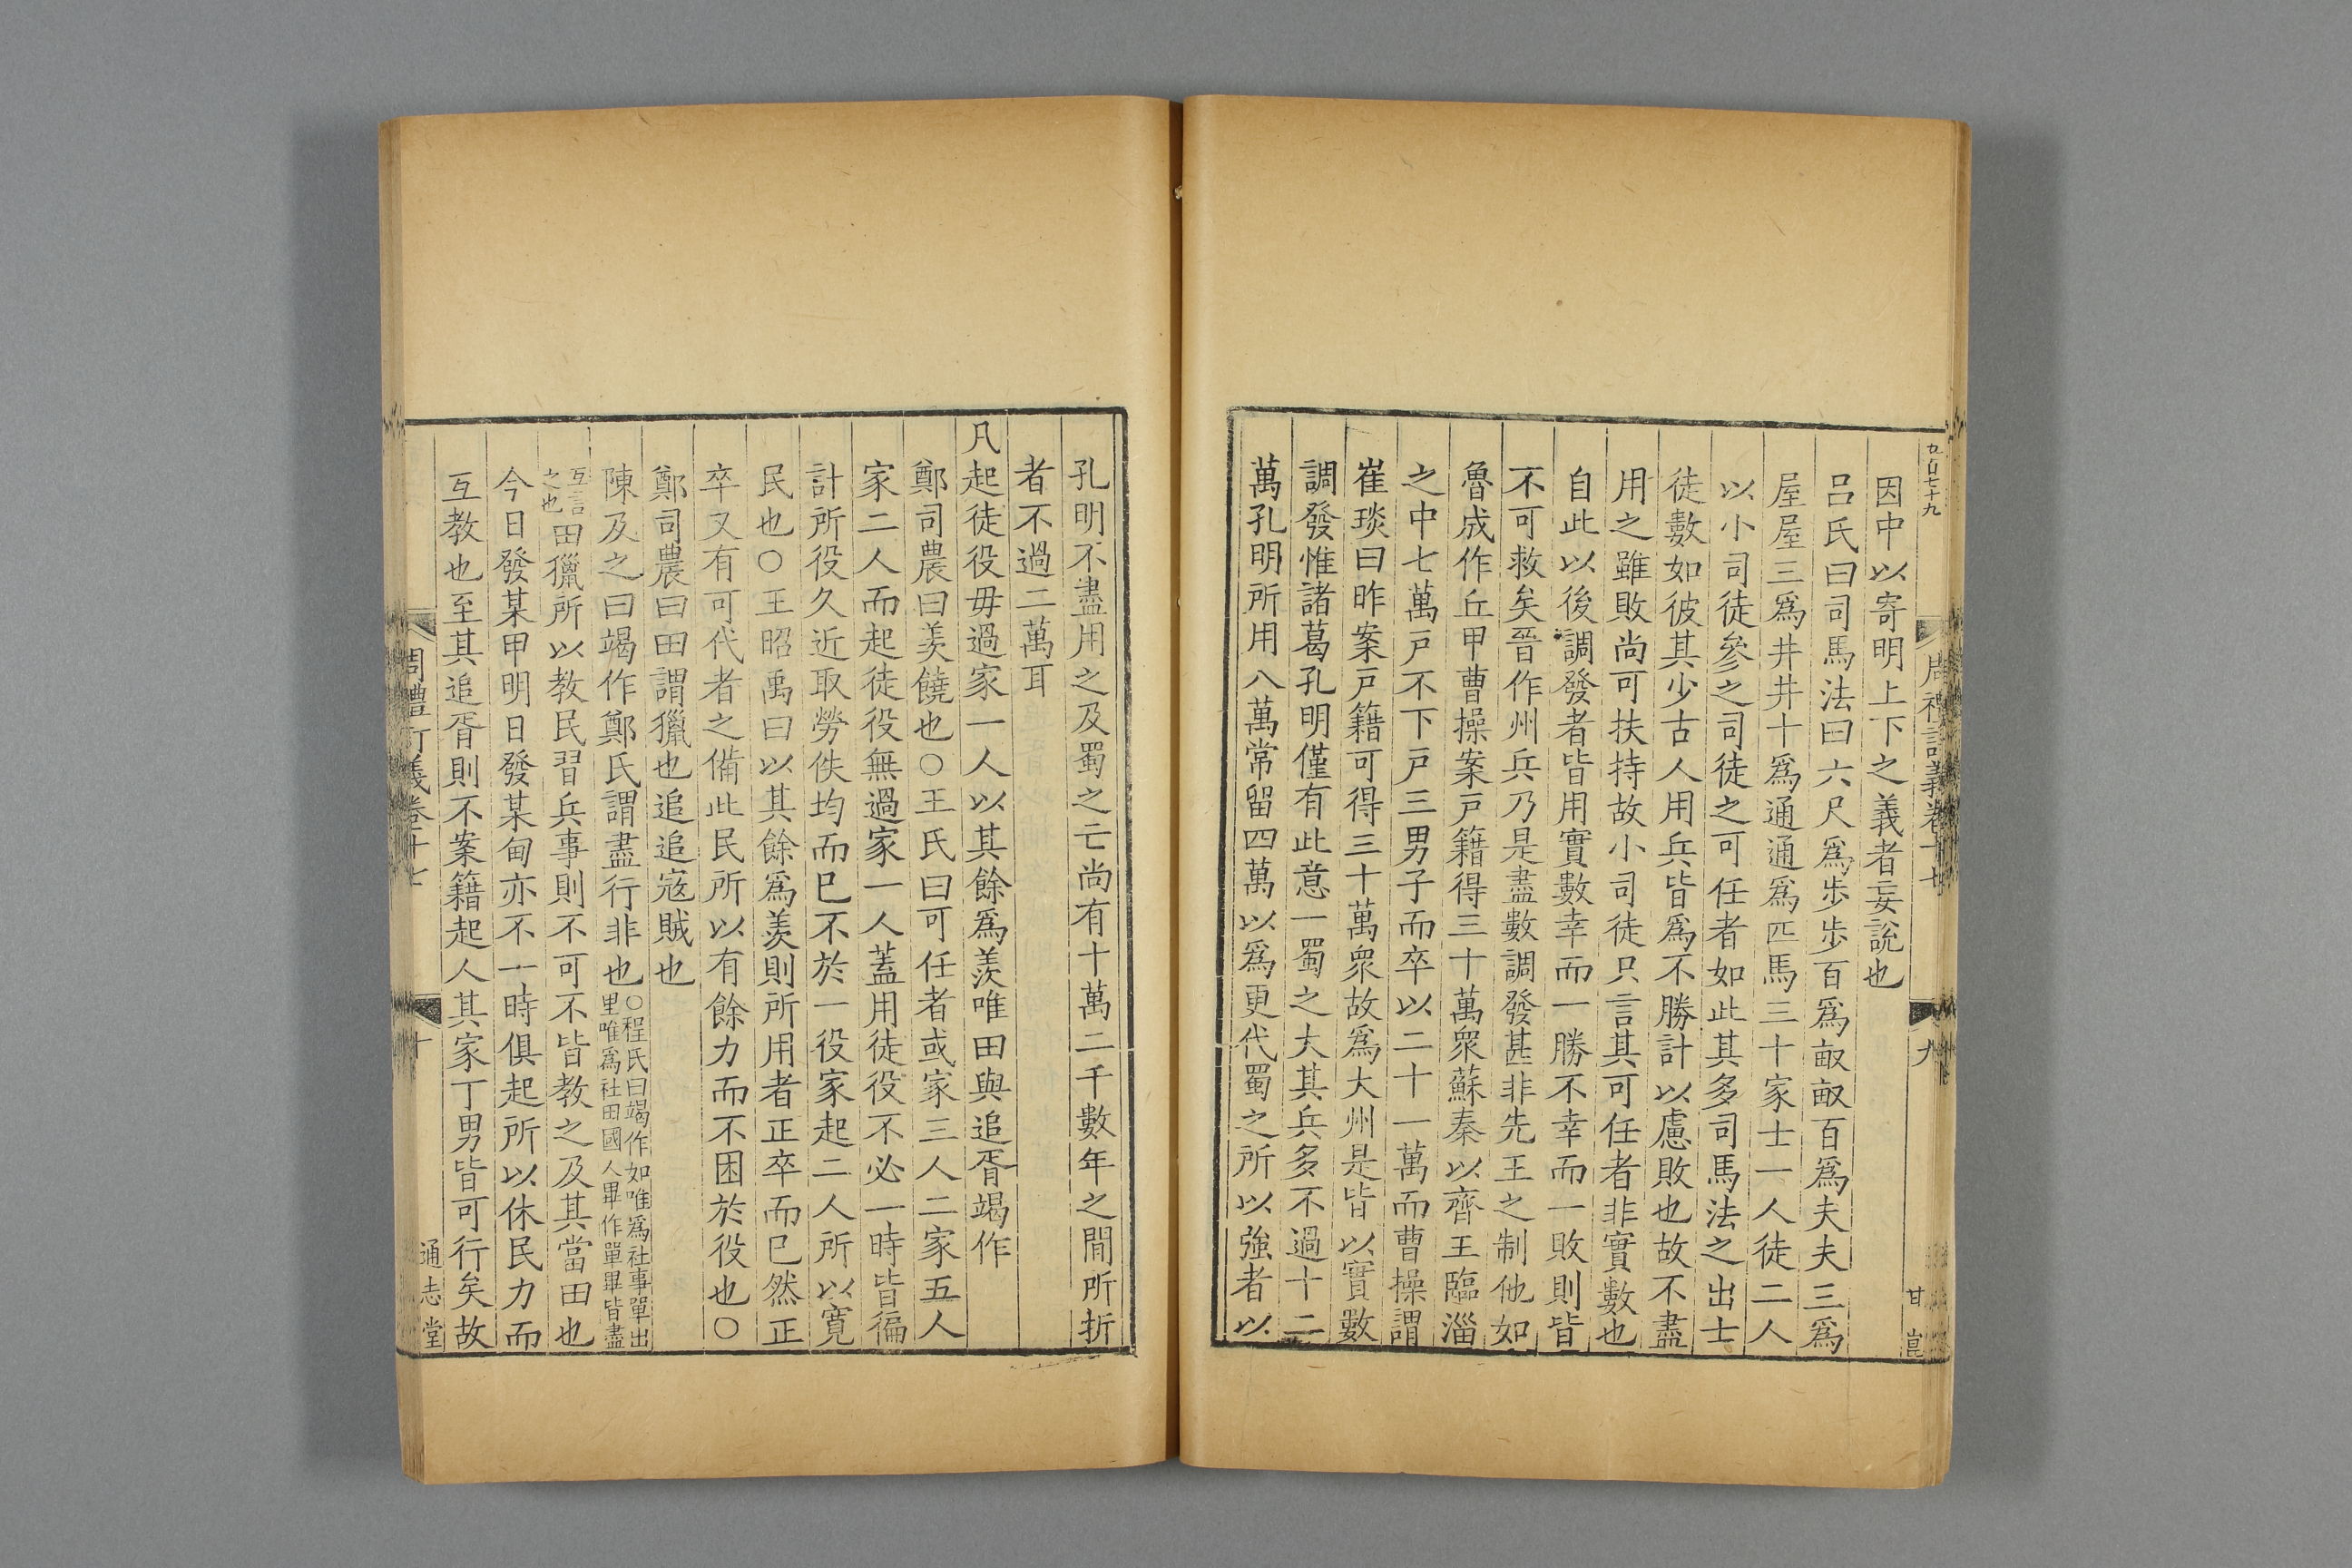 五百七十九
周禮訂義卷十七
九
甘
因中以寄明上下之義者妄說也
呂氏曰司馬法曰六尺爲步步百爲畝畝百爲夫夫三爲
屋屋三爲井井十爲通通爲匹馬三十家士一人徒二人
以小司徒參之司徒之可任者如此其多司馬法之出士
徒數如彼其少古人用兵皆爲不勝計以慮敗也故不盡
用之雖敗尚可扶持故小司徒只言其可任者非實數也
自此以後調發者皆用實數幸而一勝不幸而一敗則皆
不可救矣晉作州兵乃是盡數調發甚非先王之制他如
魯成作丘甲曹操案戶籍得三十萬衆蘇秦以齊王臨淄
之中七萬戶不下戶三男子而卒以二十一萬而曹操謂
崔琰曰昨案戶籍可得三十萬衆故爲大州是皆以實數
調發惟諸葛孔明僅有此意一蜀之大其兵多不過十二
萬孔明所用八萬常留四萬以爲更代蜀之所以強者以
孔明不盡用之及蜀之亡尚有十萬二千數年之間所折
者不過二萬耳
凡起徒役毋過家一人以其餘爲羨唯田與追胥竭作
鄭司農曰羨饒也○王氏曰可任者或家三人二家五人
家二人而起徒役無過家一人蓋用徒役不必一時皆徧
計所役久近取勞佚均而已不於一役家起二人所以寬
民也○王昭禹曰以其餘爲羨則所用者正卒而已然正
卒又有可代者之備此民所以有餘力而不困於役也○
鄭司農曰田謂獵也追追寇賊也
陳及之曰竭作鄭氏謂盡行非也○程氏曰竭作如唯爲社事單出里唯爲社田國人畢作單畢皆盡
互言之也田獵所以教民習兵事則不可不皆教之及其當田也
今日發某甲明日發某甸亦不一時俱起所以休民力而
互教也至其追胥則不案籍起人其家丁男皆可行矣故
周禮訂義卷十七
十
通志堂